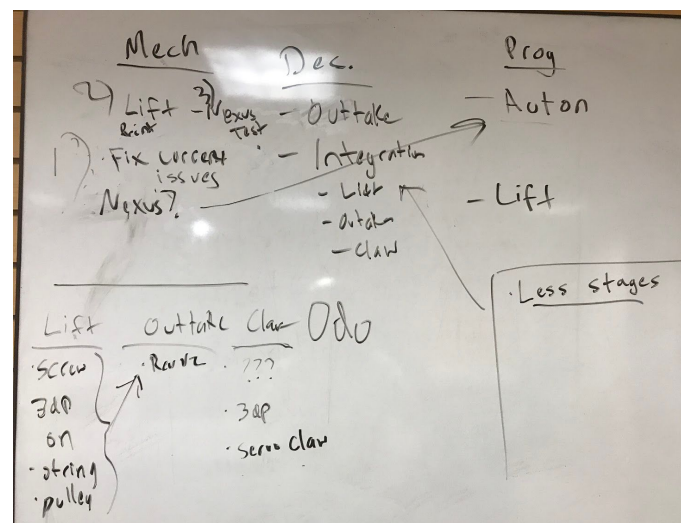 Mech
2) Lift
Print
3) Nexus
Test
1) · Fix current
issues
Nexus?
Dec.
- Outtake
- Integration
- Lift
- Outake
- Claw
Prog
- Auton
- Lift
· Less stages
Lift
· Screw
3dp
on
· string
· pulley
Outtake
Claw
· ???
· 3dp
· servo claw
Odo